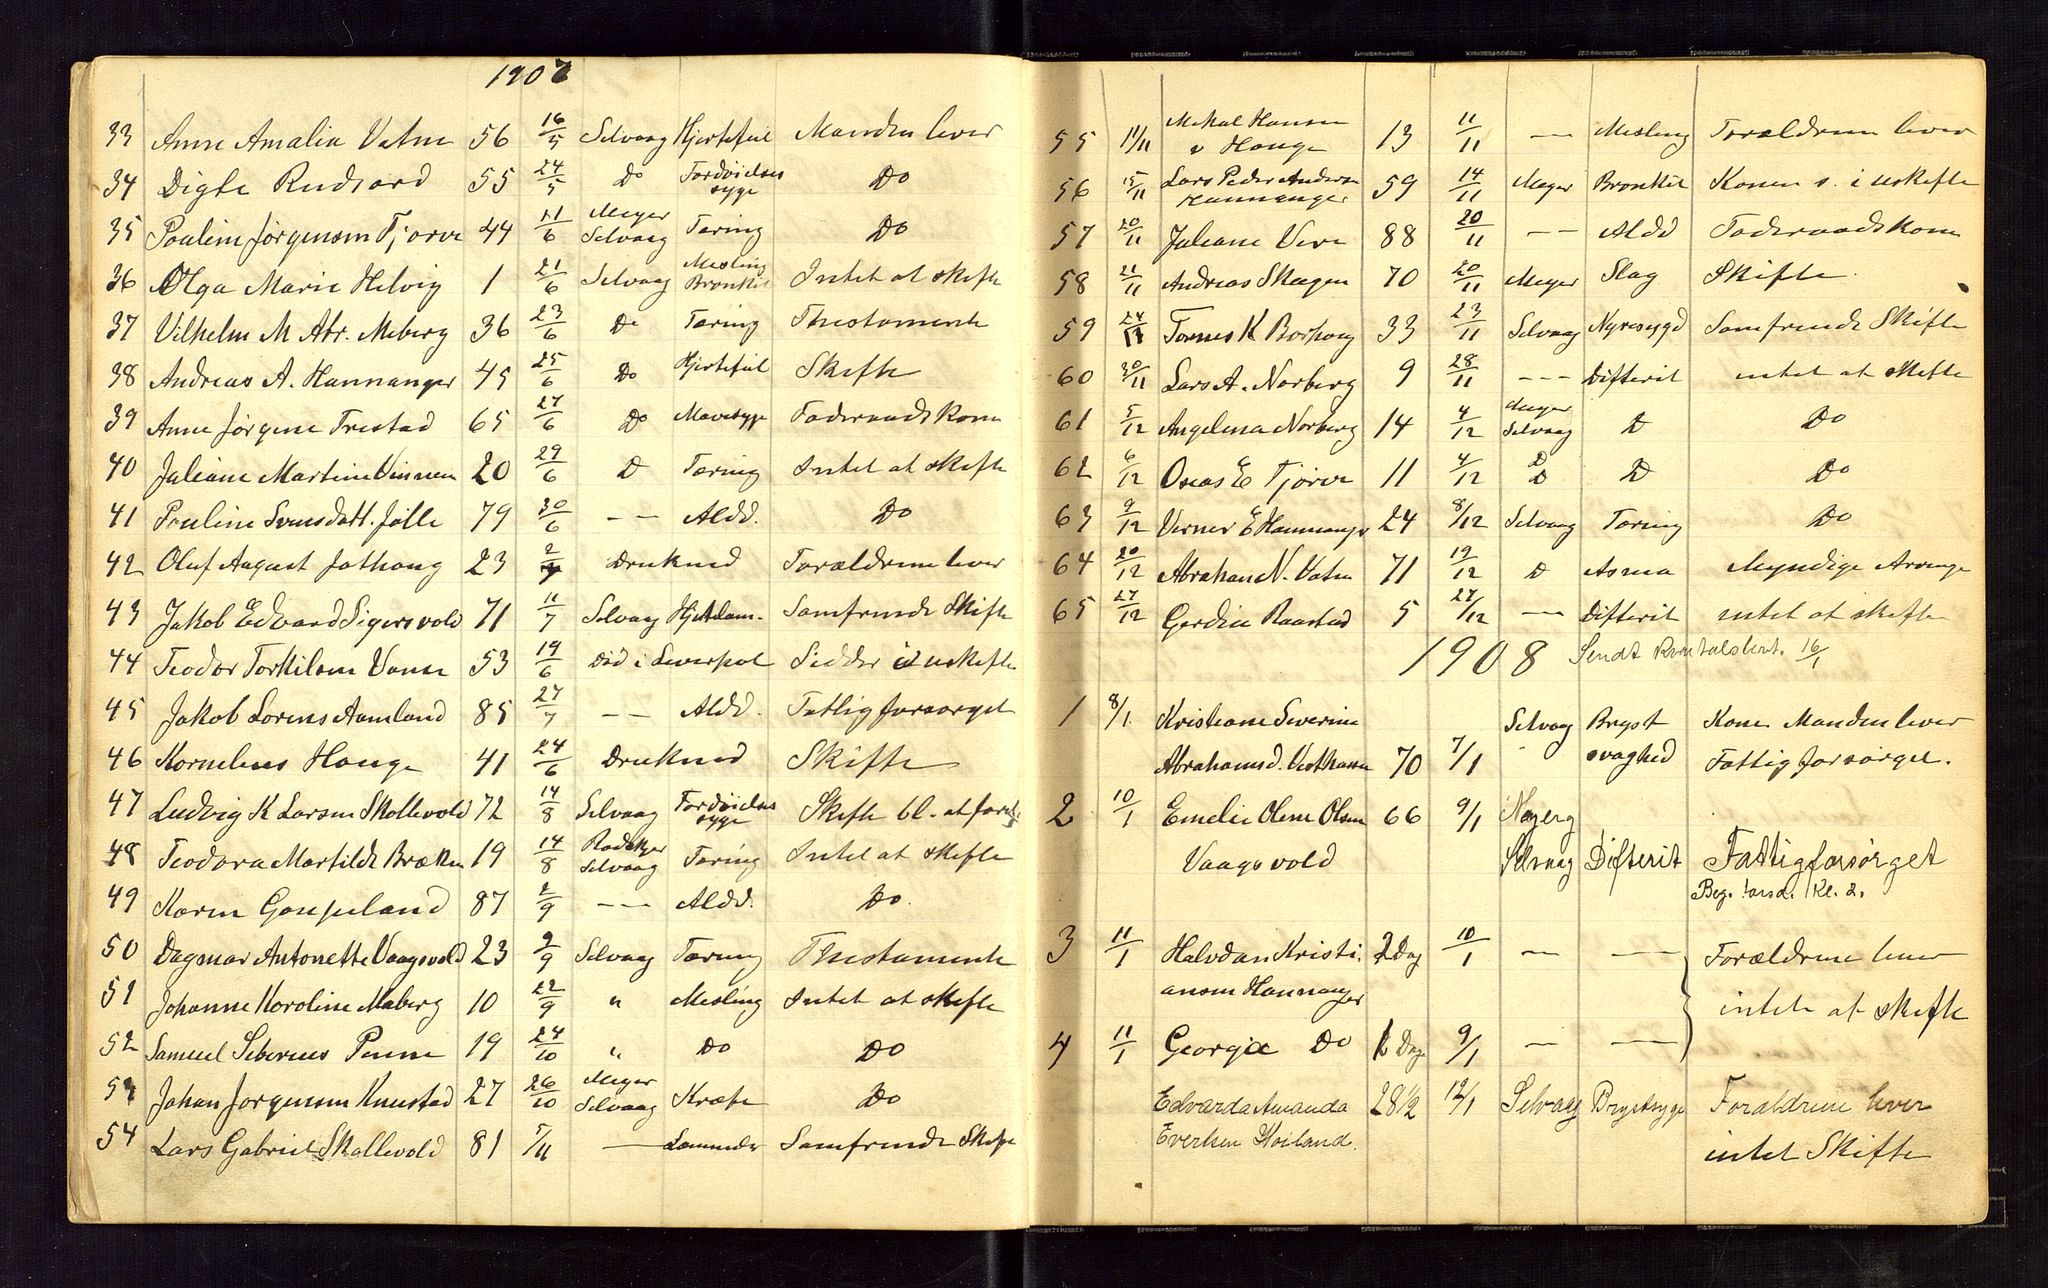 1907
33 Anne Amalia Vatne 56 16/5 Selvaag Hjertefeil Manden lever
34 Digte Rudsard 55 24/5 Do Fordøielses syge Do
35 Pouline Jørgensen Tjørve 44 11/6 Meyer Selvaag Tæring Do
36 Olga Marie Helvig 1 21/6 Selvaag Mesling Bronkit Intet at skifte
37 Vilhelm M Abr. Meberg 36 23/6 Do Tæring Thestamente
38 Andreas A. Hannanger 45 25/6 Do Hjertefeil Skifte
39 Anne Jørgine Frestad 65 27/6 Do Mavesyge Foderaadskone
40 Juliane Martine 20 29/6 D Tæring Intet at skifte
41 Pouline Svensdatt. Jølle 79 30/6 -- Aldd. Do
42 Oluf August Jøthoug 23 2/7 Drukned Forældrene lever
43 Jakob Edvard Sigersvold 71 11/7 Selvaag Samfrende Skifte
44 Teodor Torkilsen Vanse 53 19/6 Død i Leverpol Sidder i uskifte
45 Jakob Lorens Aamland 85 27/7 -- Aldd. Fatlig forsørget
46 Kornelius Hauge 41 24/6 Druknet Skifte
47 Ludvig K Larsen Skollevold 72 14/8 Selvaag Fordøielses syge Skifte bl. at
48 Teodora Martilde Bræken 19 14/8 Selvaag Tæring Intet at skifte
49 Karen Gaupeland 87 2/9 -- Aldd. Do
50 Dagmar Antonette Vaagsvold 23 9/9 Selvaag Tæring Thestamente
51 Johanne Karoline Maberg 10 22/9 " Mesling Intet at skifte
52 Samuel Siberius Penne 19 24/10 " Do Do
53 Johan Jørgensen Knustad 27 26/10 Meyer Selvaag Kræft Do
54 Lars Gabriel Skollevold 81 7/11 — Samfrende Skifte
55 11/11 Mikal Hansen v Hauge 13 11/11 — Mesling Forældrene lever
56 15/11 Lars Peder Andersen Hannanger 59 14/11 Meyer Bronkit Konen s. i uskifte
57 20/11 Juliane Vere 88 20/11 -- Aldd Foderaadskone
58 21/11 Andreas Skagen 70 20/11 Meyer Slag Skifte
59 24/11 Tomes K Borhoug 33 23/11 Selvaag Nyresygd Samfrende Skifte
60 30/11 Lars A. Norberg 9 28/11 --- Difterit intet at skifte
61 5/12 Angelina Norberg 14 4/12 Meyer Selvaag D Do
62 6/12 Oseas E Tjørve 11 4/12 D D D Do
63 9/12 Verner E Hannanger 24 8/12 Selvaag Tæring Do
64 20/12 Abraham N. Vatne 71 19/12 D Asma Myndige Arvinge
65 27/12 Gerdine Raastad 5 27/12 — Difterit intet at skifte
1908 Sendt Kvartalsberet. 16/1
1 8/1 Kristiane Severine Selvaag Bryst Kone Manden lever
Abrahamsd. Vesthassel 70 7/1 svaghed Fattig forsørget.
2 10/1 Emelie Olene Olsen 66 9/1
Vaagsvold Selvaag Difterit Fattigforsørget
Beg. Kl. 2.
3 11/1 Halvdan Kristi. 2 Dag 10/1 — — Forældrene lever
ansen Hannanger intet at skifte
4 11/1 Georgie Do Dage 9/1 — —
Edvarda Amanda 28½ 12/1 Selvaag Brystsyge Forældrene lever
Evertsen Høiland. intet Skifte